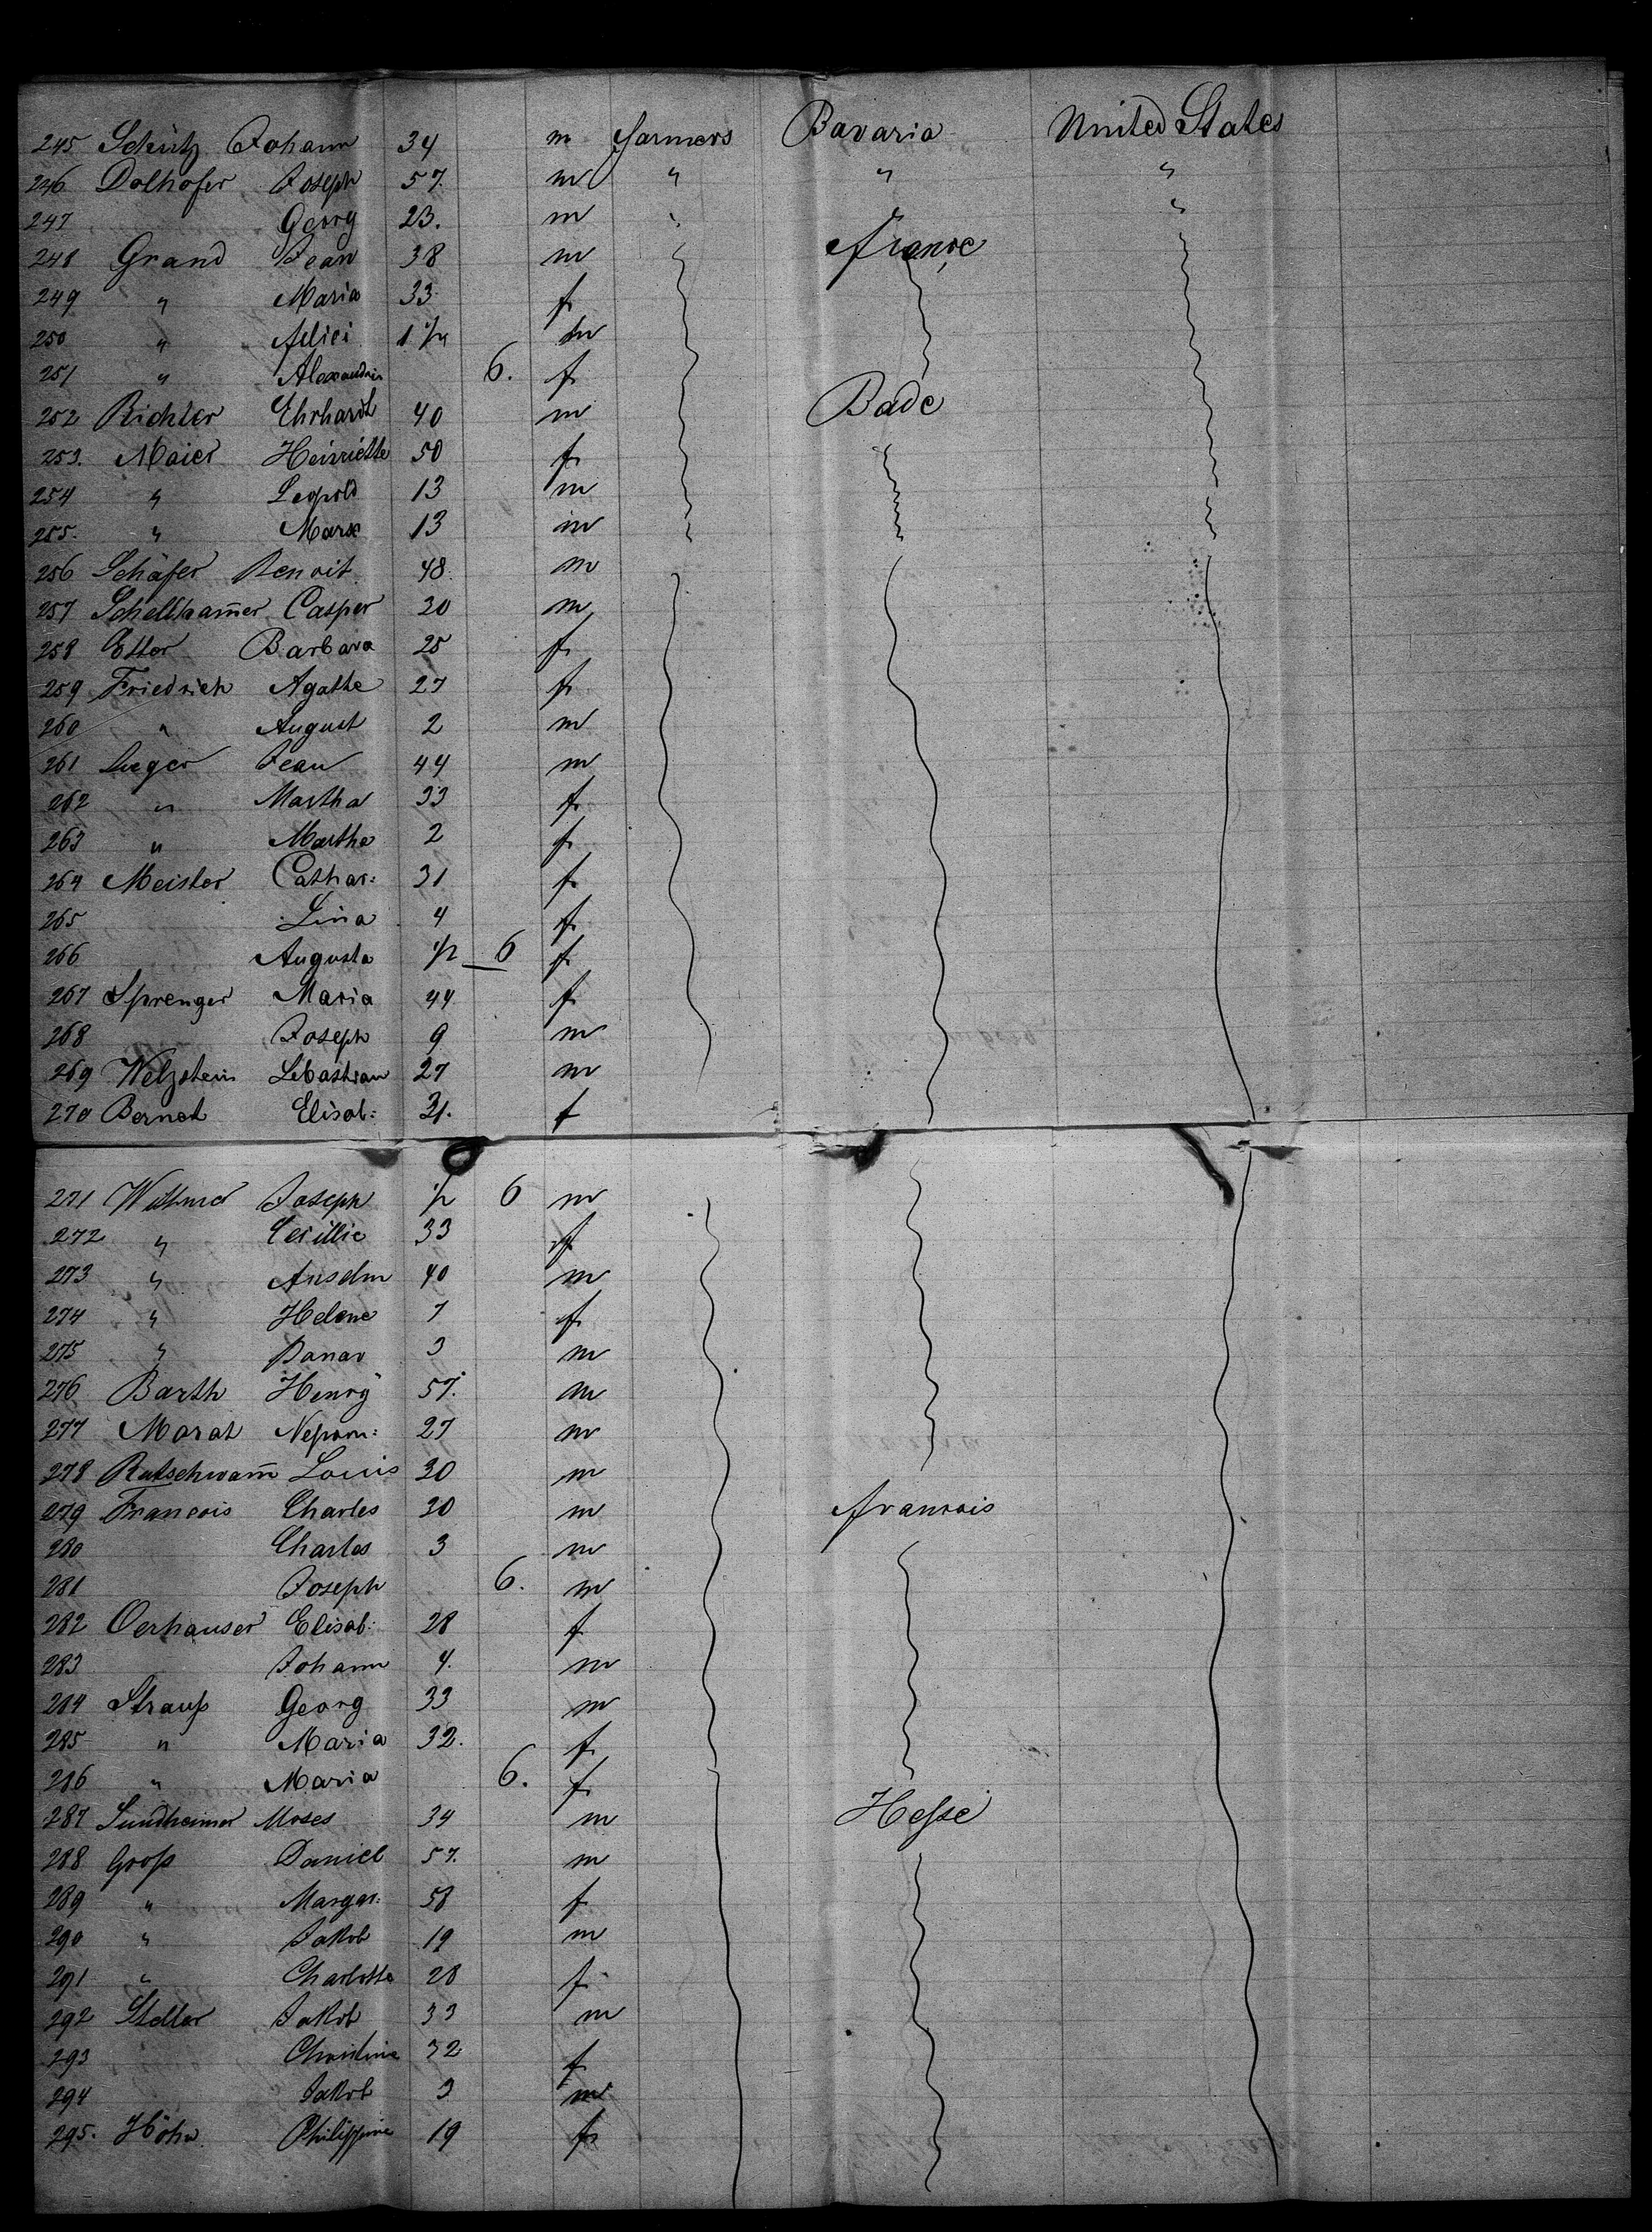 245 Schütz Johann 34 m farmers Bavaria United States
246 Dolhofer Joseph 57. m " " "
247 Georg 23. m " " "
248 Grand Jean 38 m france
249 " Maria 33 f
250 " felici 1 1/4 m
251 " Alexandrin 6. f
252 Richter Ehrhardt 40 m Bade
253. Maier Heinriette 50 f
254 " Leopold 13 m
255. " Marx 13 m
256 Schäfer Benoit 48. m
257 Schellham̄er Casper 30 m
258 Etter Barbara 25 f
259 Friedrich Agathe 27 f
260 " August 2 m
261 Jean 44 m
262 " Martha 33 f
263 " Martha 2 f
264 Meister Cathar: 31 f
265 Lina 4 f
266 Augusta 1/2 6 f
267 Sprenger Maria 44 f
268 Joseph 9 m
269 Welzstein Sebastian 27 m
270 Bernet Elisab: 31. f
271 Joseph 1/2 6 m
272 " Cecillie 33 f
273 " Anselm 40 m
274 " Helene 7 f
275 " 3 m
276 Barth Henry 57. m
277 Marat Nepom: 27 m
278 Rutschwam̄ Louis 30 m
279 Francois Charles 30 m francois
280 Charles 3 m
281 Joseph 6. m
282 Oerhauser Elisab: 28 f
283 Johann 4. m
284 Strauß Georg 33 m
285 " Maria 32. f
286 " Maria 6. f
287 Sundheimer Moses 34 m Heſse
288 Groß Daniel 57. m
289 " Margar: 58 f
290 " Jakob 19 m
291 " Charlotte 28 f
292 Steller Jakob 33 m
293 Christine 32 f
294 Jakob 3 m
295. Höhn Philippine 19 f